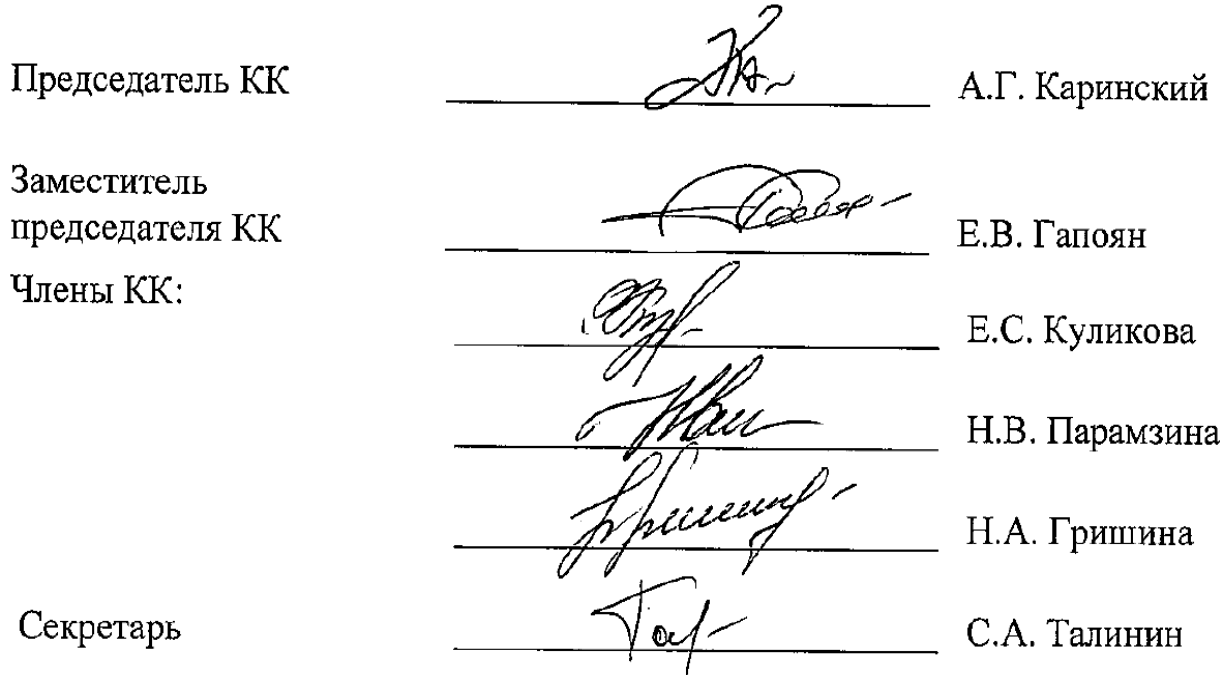 Председатель КК А.Г. Каринский
Заместитель
председателя КК Е.В. Гапоян
Члены КК:
Е.С. Куликова
Н.В. Парамзина
Н.А. Гришина
Секретарь С.А. Талинин